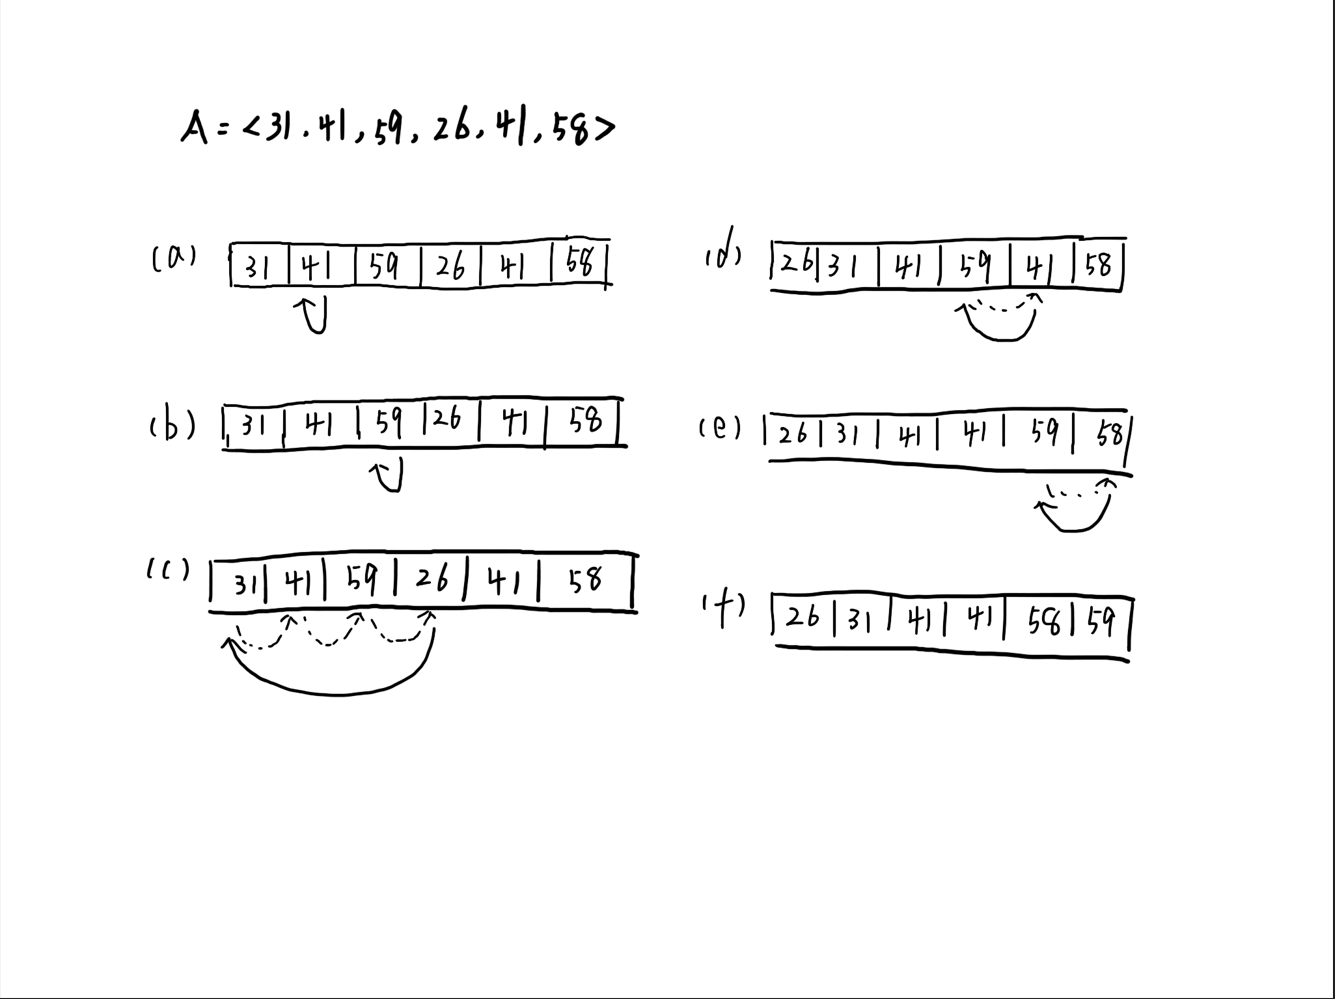 A = <31. 41, 59, 26, 41, 58>
(a) 31 41 59 26 41 58
(b) 31 41 59 26 41 58
(c) 31 41 59 26 41 58
(d) 26 31 41 59 41 58
(e) 26 31 41 41 59 58
(f) 26 31 41 41 58 59